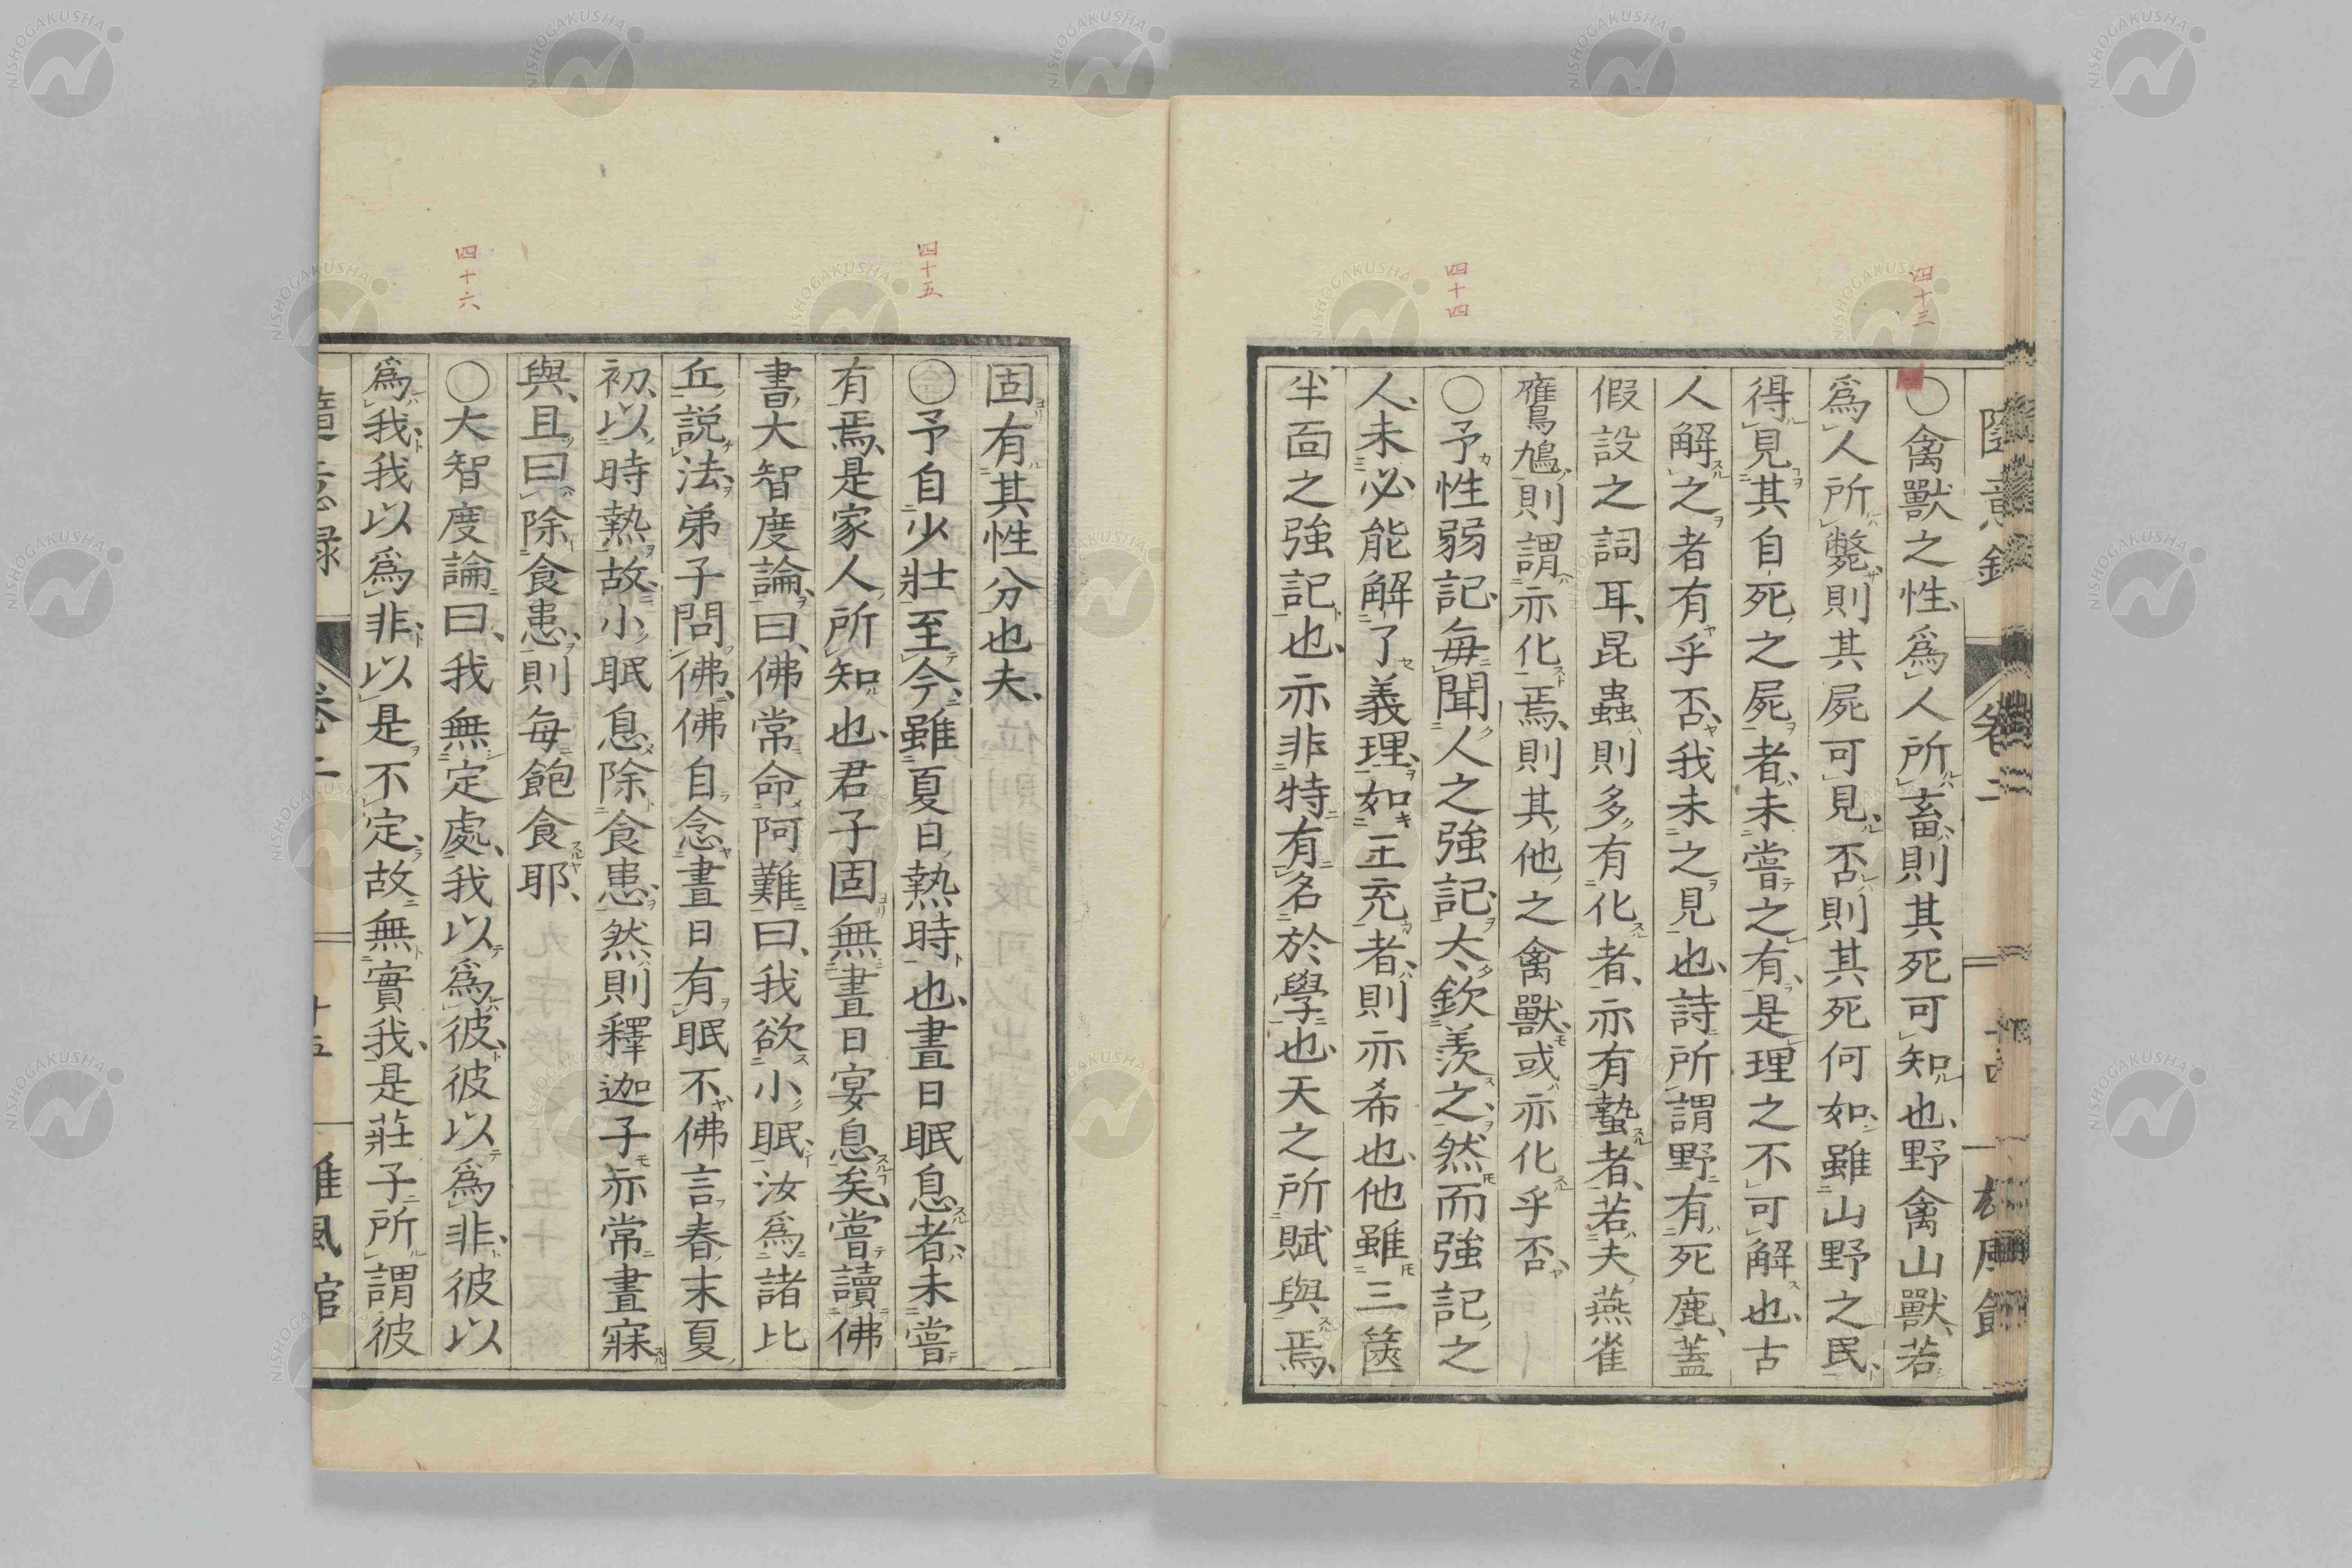 四十三
○禽獸之性、爲人所畜、則其死可知也、野禽山獸、若
爲人所斃、則其屍可見、否則其死何如、雖山野之民、
得見其自死之屍者、未嘗之有、是理之不可解也、古
人解之者有乎否、我未之見也、詩所謂野有死鹿、蓋
假設之詞耳、昆蟲則多有化者、亦有蟄者、若夫燕雀
鷹鳩、則謂亦化焉、則其他之禽獸、或亦化乎否、
四十四
○予性弱記、每聞人之強記、太欽羨之、然而強記之
人、未必能解了義理、如王充者、則亦希也、他雖三篋
半面之強記也、亦非特有名於學也、天之所賦與焉、
固有其性分也夫、
四十五
○予自少壯至今、雖夏日熱時也、晝日眠息者、未嘗
有焉、是家人所知也、君子固無晝日宴息矣、嘗讀佛
書大智度論、曰、佛常命阿難曰、我欲小眠、汝爲諸比
丘說法、弟子問佛、佛自念晝日有眠不、佛言春末夏
初、以時熱故、小眠息除食患、然則釋迦子亦常晝寐
與、且曰除食患、則每飽食耶、
四十六
○大智度論曰、我無定處、我以爲彼、彼以爲非、彼以
爲我、我以爲非、以是不定故、無實我、是莊子所謂彼
卷二
十五
NISHOGAKUSHA